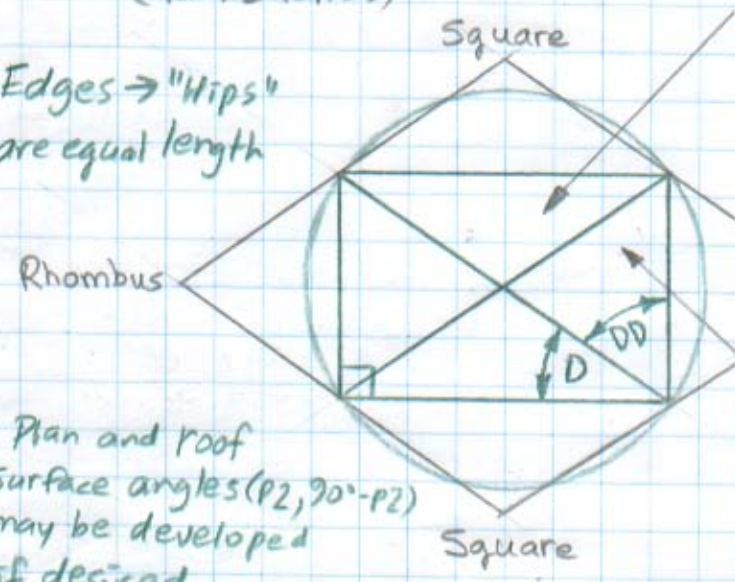 Square
Edges → "Hips"
are equal length
Rhombus
DD
D
Plan and roof
surface angles (P2, 90°-P2)
may be developed
if desired
Square